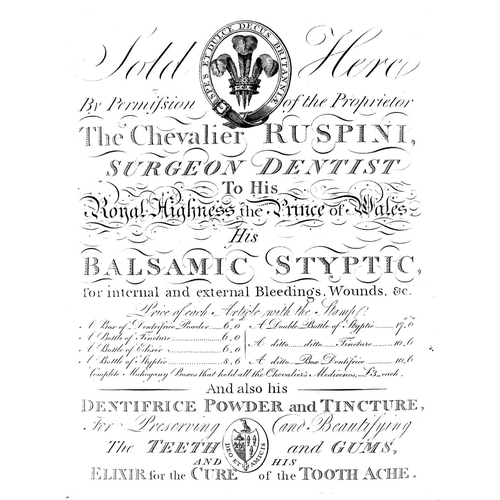 SPES ET DULCE DECUS BRITANNIÆ
Sold Here
By Permiſsion of the Proprietor
The Chevalier RUSPINI,
SURGEON DENTIST
To His
Royal Highness, the Prince of Wales
His
BALSAMIC STYPTIC,
for internal and external Bleedings, Wounds, &c.
Price of each Article with the Stamp:
A Box of Dentrifice Powder... 6,,0 A Double Bottle of Styptic... 17,,0
A Bottle of Tincture... 6,,0 A ditto... ditto... Tincture... 10,,6
A Bottle of Elixir... 6,,0
A Bottle of Styptic... 8,,6 A ditto... Box Dentifrice... 10,,6
Complete Mahogany Boxes that hold all the Chevalier's Medicines, £3,, each.
And also his
DENTIFRICE POWDER and TINCTURE,
For Preserving and Beautifying
The TEETH and GUMS,
DEO ET AMICIS
AND HIS
ELIXIR for the CURE of the TOOTH ACHE.